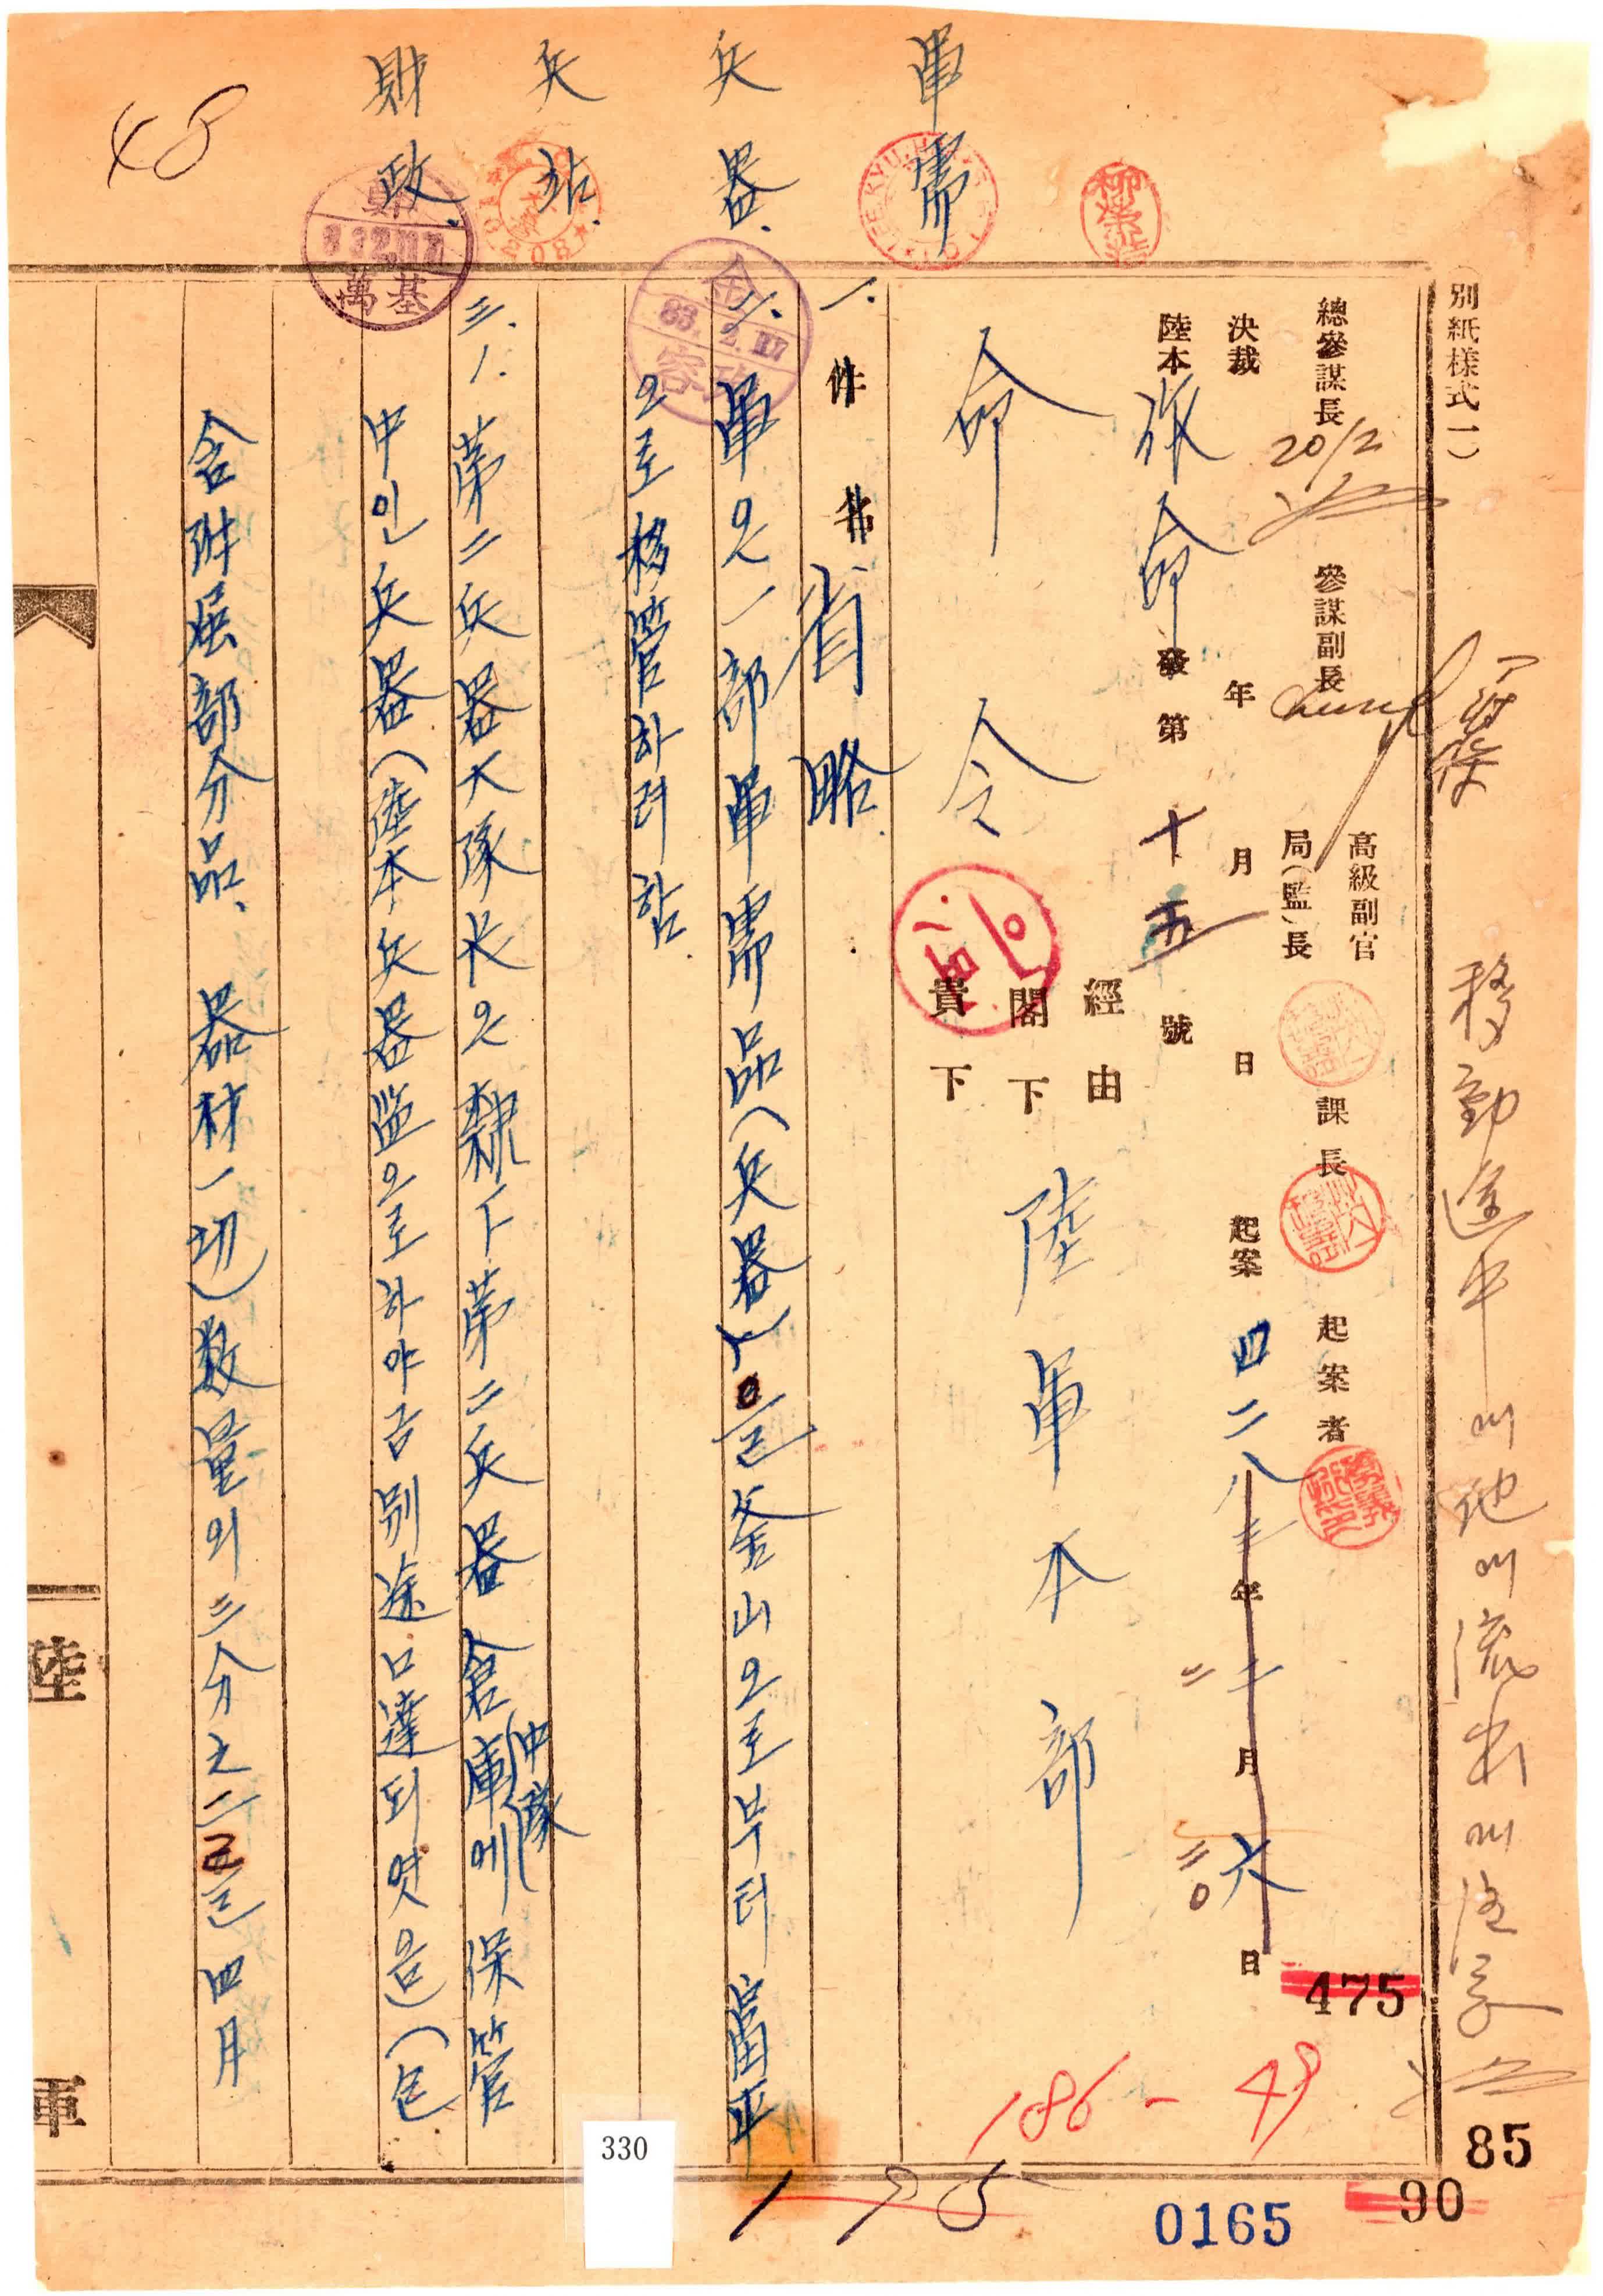 (別紙樣式一)
移動途中 地 流出 注意
總參謀長 參謀副長 高級副官 局(監)長 課長 起案者
20/2
決裁 年 月 日 起案 四二八三年二月六日
二 二〇
陸本 作命 發第 十五 號
經由
閣下
貴下
命令
陸軍本部
一. 件名 省略.
二. 軍은 一部 軍需品(兵器)을 釜山으로부터 富平
으로 移管하려 함.
三. 1. 第二兵器大隊長은 隸下 第二兵器倉庫(中隊)에 保管
中인 兵器(陸本兵器監으로하야금 別途 口達되엿음)(包
含附屬部分品、器材一切) 数量의 三分之二를 四月
軍需
兵器.
兵站.
財政.
48
鄭
83.2.17
萬基
金
83.2.17
容
LEE.KYU.H
208
475
186-49
85
90
195
0165
330
陸
軍